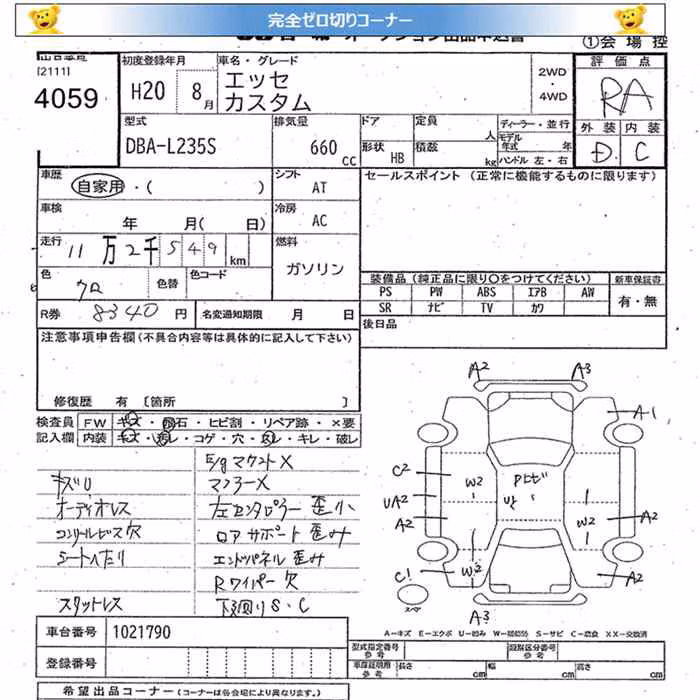 完全ゼロ切りコーナー
①会場控
[2111]
4059
初度登録年月
H20 8月
車名・グレード
エッセ
カスタム
2WD
・
4WD
評価点
RA
外装 内装
D C
型式
DBA-L235S
排気量
660 cc
ドア
形状 HB
定員 人
積載 kg
ディーラー・並行
モデル年式 年
ハンドル 左・右
車歴
自家用・( )
シフト
AT
セールスポイント (正常に機能するものに限ります)
車検
年 月( 日)
冷房
AC
走行
11万2千549km
燃料
ガソリン
色
クロ
色替
色コード
装備品 (純正品に限り○をつけてください)
新車保証書
PS PW ABS エアB AW
SR ナビ TV カワ
有・無
R券 8340 円
名変通知期限 月 日
後日品
注意事項申告欄(不具合内容等は具体的に記入して下さい)
修復歴 有 [箇所 ]
検査員
記入欄
FW キズ・飛石・ヒビ割・リペア跡・×要
内装 キズ・汚レ・コゲ・穴・スレ・キレ・破レ
E/gマウント×
キズリ マフラー×
オーディオレス 左センタピラー歪小
コンソールビス欠 ロアサポート歪み
シートヘたり エンドパネル歪み
Rワイパー欠
スタットレス 下廻りS・C
A2 A3
A-1
C2
W2
UA2
A2
W2
A2
C1
W2
A2
A3
スペア
A-キズ E-エクボ U-凹み W-補修跡 S-サビ C-腐食 XX-交換済
車台番号 1021790
登録番号
型式指定番号
参考
類別区分番号
参考
車庫証明用
参考
長さ cm
幅 cm
高さ cm
希望出品コーナー (コーナーは各会場により異なります。)